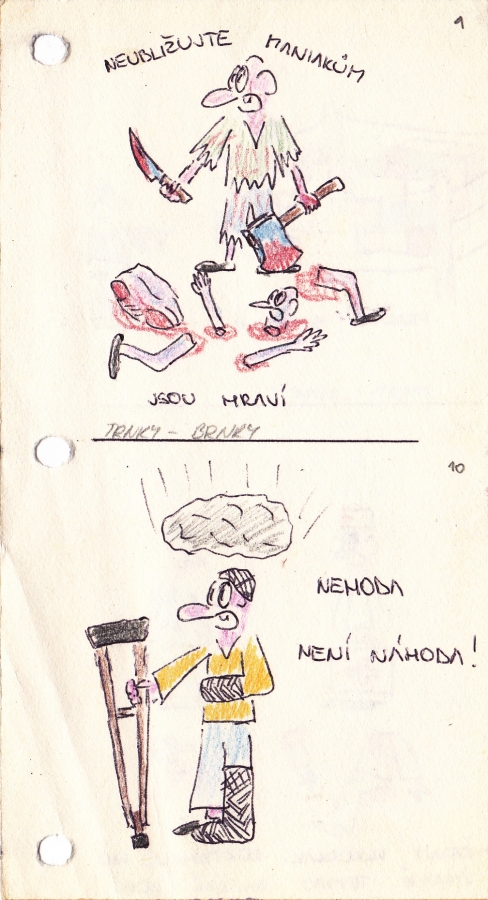 9
NEUBLIŽUJTE MANIAKŮM
JSOU HRAVÍ
TRNKY - BRNKY
10
NEHODA
NENÍ NÁHODA!